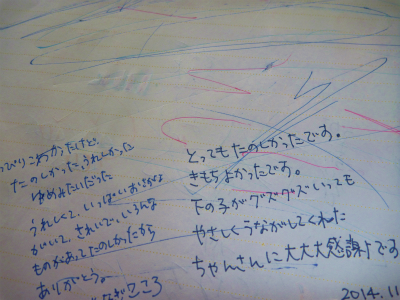 っぴりこわかったけど、
たのしかった、うれしかった
ゆめみたいだった
うれしくて、いっぱいおさかな
がいて、きれいで、いろんな
ものがあってたのしかったから
ありがとう。
とってもたのしかったです。
きもちよかったです。
下の子がグズグズいっても
やさしくうながしてくれた
ちゃんさんに大大大感謝です
2014.11